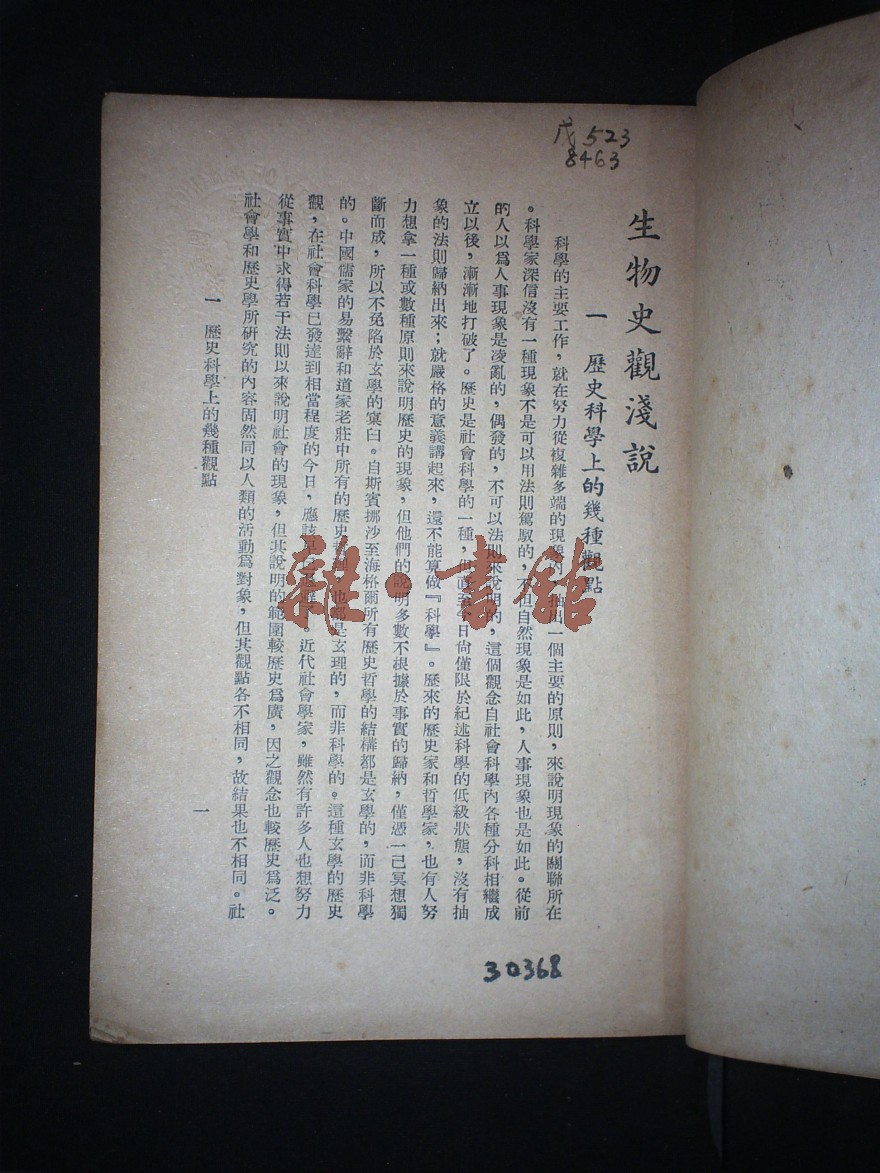 戊 523
8463
生物史觀淺說
一 歷史科學上的幾種觀點
科學的主要工作，就在努力從複雜多端的現象內，抽出一個主要的原則，來說明現象的關聯所在
。科學家深信沒有一種現象不是可以用法則駕馭的，不但自然現象是如此，人事現象也是如此。從前
的人以爲人事現象是凌亂的，偶發的，不可以法則來說明的，這個觀念自社會科學內各種分科相繼成
立以後，漸漸地打破了。歷史是社會科學的一種，但直至今日尙僅限於紀述科學的低級狀態，沒有抽
象的法則歸納出來；就嚴格的意義講起來，還不能算做『科學』。歷來的歷史家和哲學家，也有人努
力想拿一種或數種原則來說明歷史的現象，但他們的說明多數不根據於事實的歸納，僅憑一己冥想獨
斷而成，所以不免陷於玄學的窠臼。自斯賓挪沙至海格爾所有歷史哲學的結構都是玄學的，而非科學
的。中國儒家的易繫辭和道家老莊中所有的歷史哲理，也都是玄理的，而非科學的。這種玄學的歷史
觀，在社會科學已發達到相當程度的今日，應該。近代社會學家，雖然有許多人也想努力
從事實中求得若干法則以來說明社會的現象，但其說明的範圍較歷史爲廣，因之觀念也較歷史爲泛。
社會學和歷史學所研究的內容固然同以人類的活動爲對象，但其觀點各不相同，故結果也不相同。社
一 歷史科學上的幾種觀點
一
30368
雜·書館